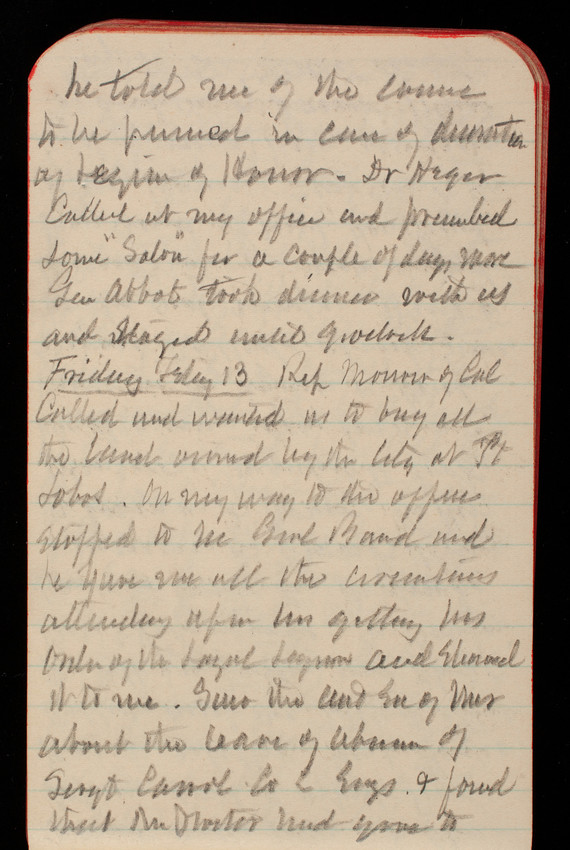 he told me of the course
to be pursued in case of decoration
of Legion of Honor. Dr Heger
Called at my office and prescribed
some "Salon" for a couple of days more
Gen Abbot took dinner with us
and stayed until 9 oclock.
Friday Feby 13 Rep Morrow of Cal
Called and wanted us to buy all
the land owned by the City at Pt
Lobos. On my way to the office
stopped to see Genl Baird and
he gave me all the
attending upon his getting his
Order of the and showed
it to me. Saw the of War
about the leave of absence of
Sergt Carrol Co Engs. & found
that the Doctor had gone to